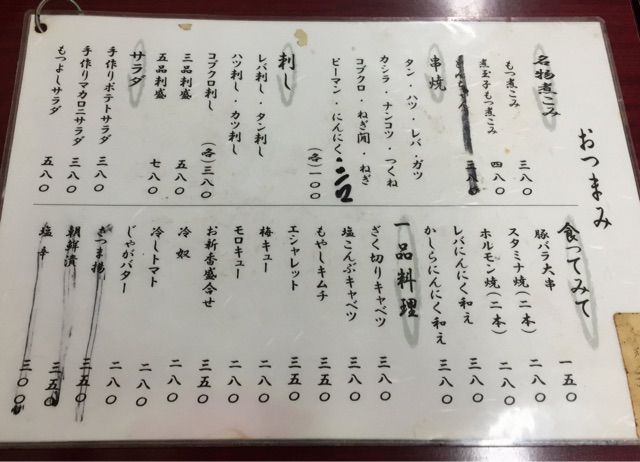 おつまみ
名物煮こみ
もつ煮こみ 三八〇
煮玉子もつ煮こみ 四八〇
串焼
タン・ハツ・レバ・ガツ
カシラ・ナンコツ・つくね
コブクロ・ねぎ間・ねぎ
ピーマン・にんにく・
(各)一〇〇
刺し
レバ刺し・タン刺し
ハツ刺し・ガツ刺し
コブクロ刺し (各)三八〇
三品刺盛 五八〇
五品刺盛 七八〇
サラダ
手作りポテトサラダ 三八〇
手作りマカロニサラダ 三八〇
もつよしサラダ 五八〇
食ってみて
豚バラ大串 一五〇
スタミナ焼(二本) 二八〇
ホルモン焼(二本) 二八〇
レバにんにく和え 三八〇
かしらにんにく和え 三八〇
一品料理
ざく切りキャベツ 三八〇
塩こんぶキャベツ 三八〇
もやしキムチ 三五〇
エシャレット 三五〇
梅キュー 二八〇
モロキュー 二八〇
お新香盛合せ 三五〇
冷奴 二八〇
冷しトマト 二八〇
じゃがバター 二八〇
さつま揚 三五〇
朝鮮漬 三五〇
塩辛 三〇〇